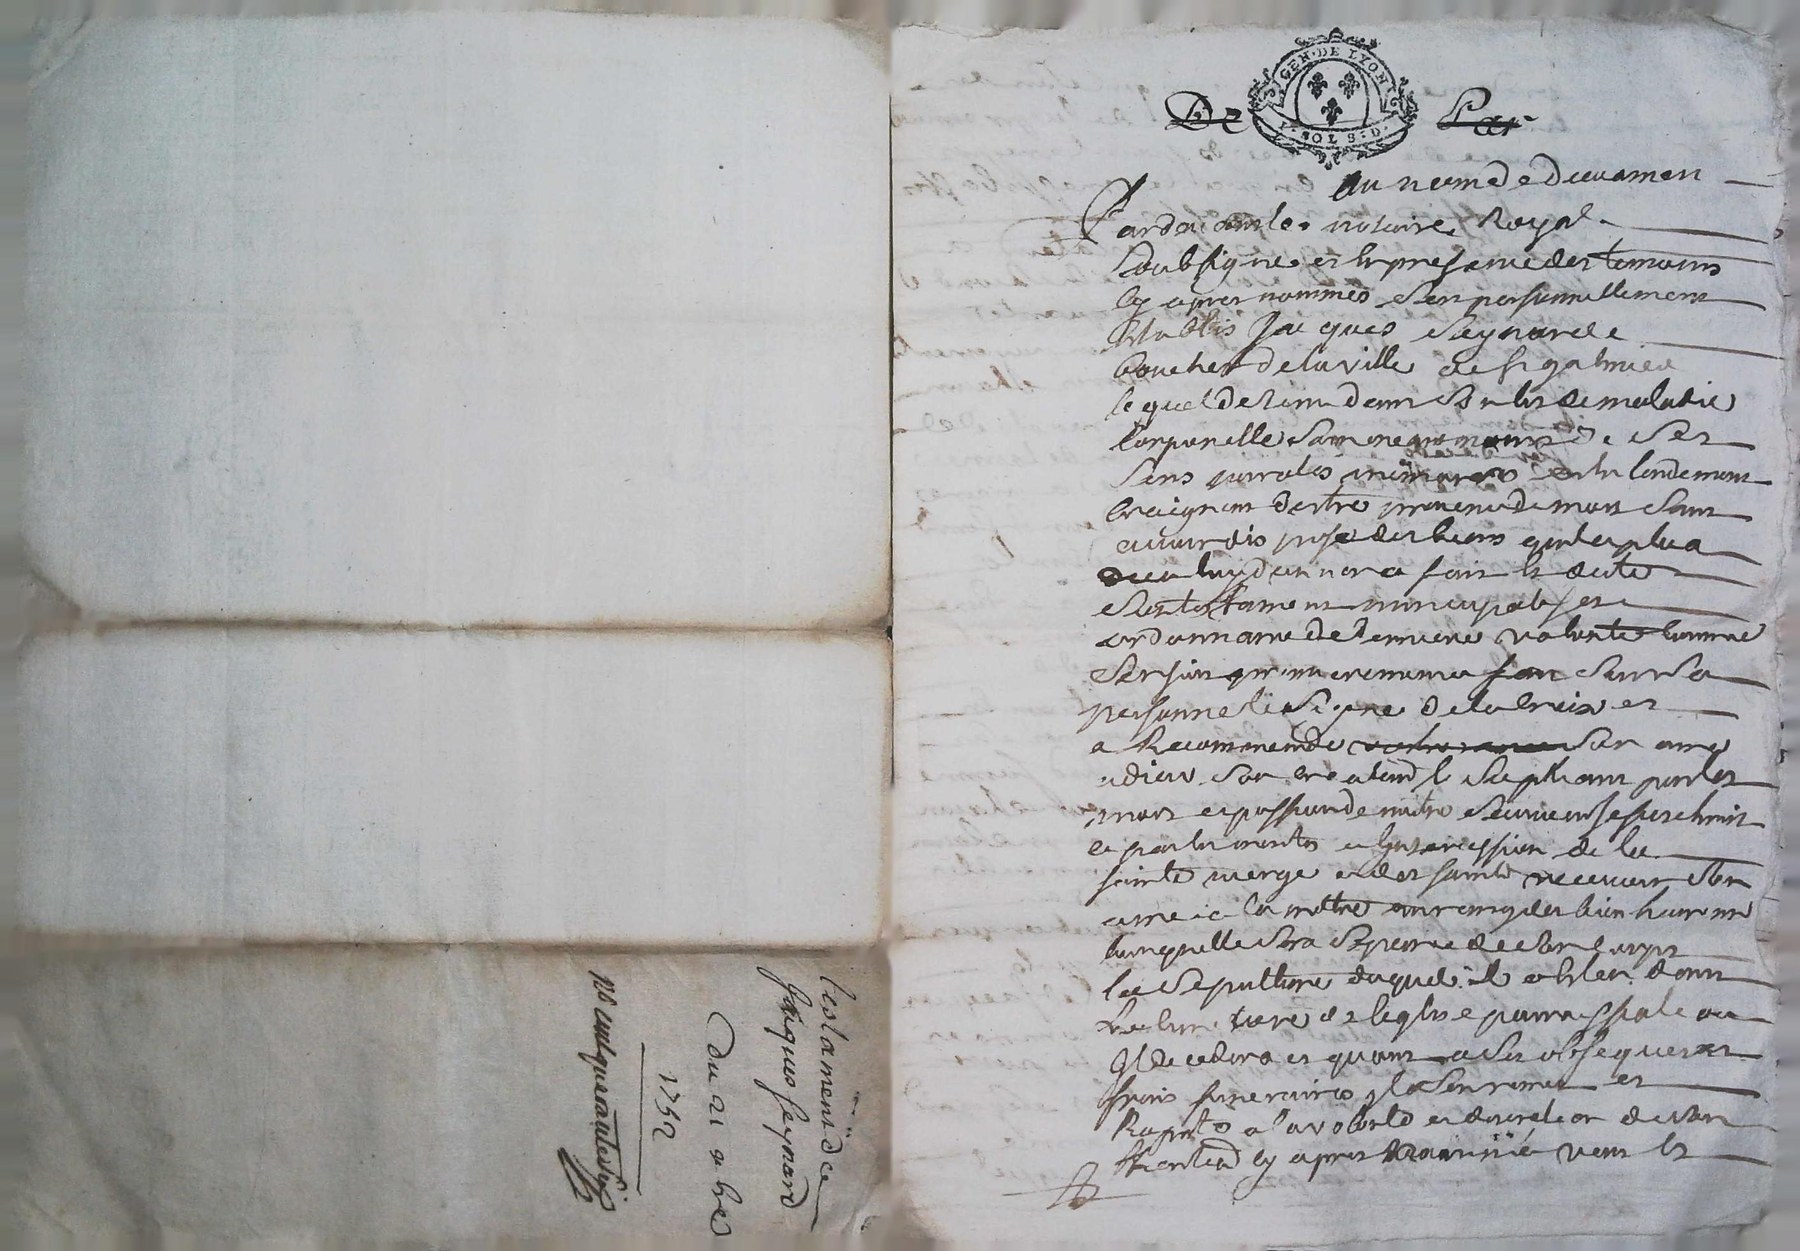 Testament de
Jacques Seynard
Du 21 8bre
1752
no cent quarante six
GEN. DE LYON
SOLS. D.
De Par
Au nom de Dieu amen
Pardevant le notaire Royal
Soubsigné et en presence des temoins
cy apres nommés s'est personnellement
etablis Jacques Seynard
boucher de la ville de St galmier
lequel detenu dans son lit de maladie
corporelle sain neanmoins de ses
sens parolles memoire et entendement
craignant d'estre prevenu de mort sans
avoir dispose des biens qu'il a plu a
dieu luy donner a fait et dicté
son testament nuncupatif et
ordonnance de derniere volonté comme
s'ensuit premierement a fait sur sa
personne le signe de la croix et
a Recommandé son ame
a dieu son createur le supliant par les
mort et passion de notre sauveur Jesus christ
et par les merites et Intercession de la
sainte vierge et des saints recevoir son
ame et la mettre au rang des bien heureux
lorsquelle sera separée de son corps
la sepulture duquel il a esleu dans
le cimetiere de leglise parroissiale ou
Il decedera et quant a ses obseques et
frais funeraires yl s'en remet et
Raporte a la volonté et discretion de son
heritier cy apres nommé veut et